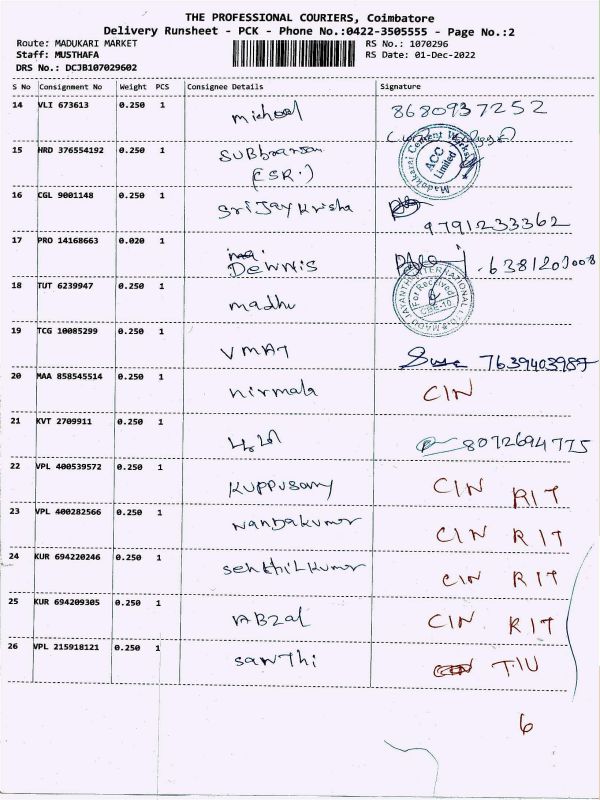 THE PROFESSIONAL COURIERS, Coimbatore
Delivery Runsheet - PCK - Phone No.:0422-3505555 - Page No.:2
Route: MADUKARI MARKET RS No.: 1070296
Staff: MUSTHAFA RS Date: 01-Dec-2022
DRS No.: DCJB107029602
S No Consignment No Weight PCS Consignee Details Signature
14 VLI 673613 0.250 1 michael 8680937252
15 HRD 376554192 0.250 1 Subbraman
(ESR.)
Madukkarai Cement Works
ACC Limited
16 CGL 9001148 0.250 1 Sri Jay Krisha 9791233362
17 PRO 14168663 0.020 1 DENNIS
18 TUT 6239947 0.250 1 madhu
For Received
CBE-10
19 TCG 10085299 0.250 1 VMAT 7639403987
20 MAA 858545514 0.250 1 nirmala CIN
21 KVT 2709911 0.250 1 8072694775
22 VPL 400539572 0.250 1 Kuppusamy CIN RIT
23 VPL 400282566 0.250 1 Nandakumar CIN RIT
24 KUR 694220246 0.250 1 Senthilkumar CIN RIT
25 KUR 694209305 0.250 1 ABzal CIN RIT
26 VPL 215918121 0.250 1 Santhi TIU
6